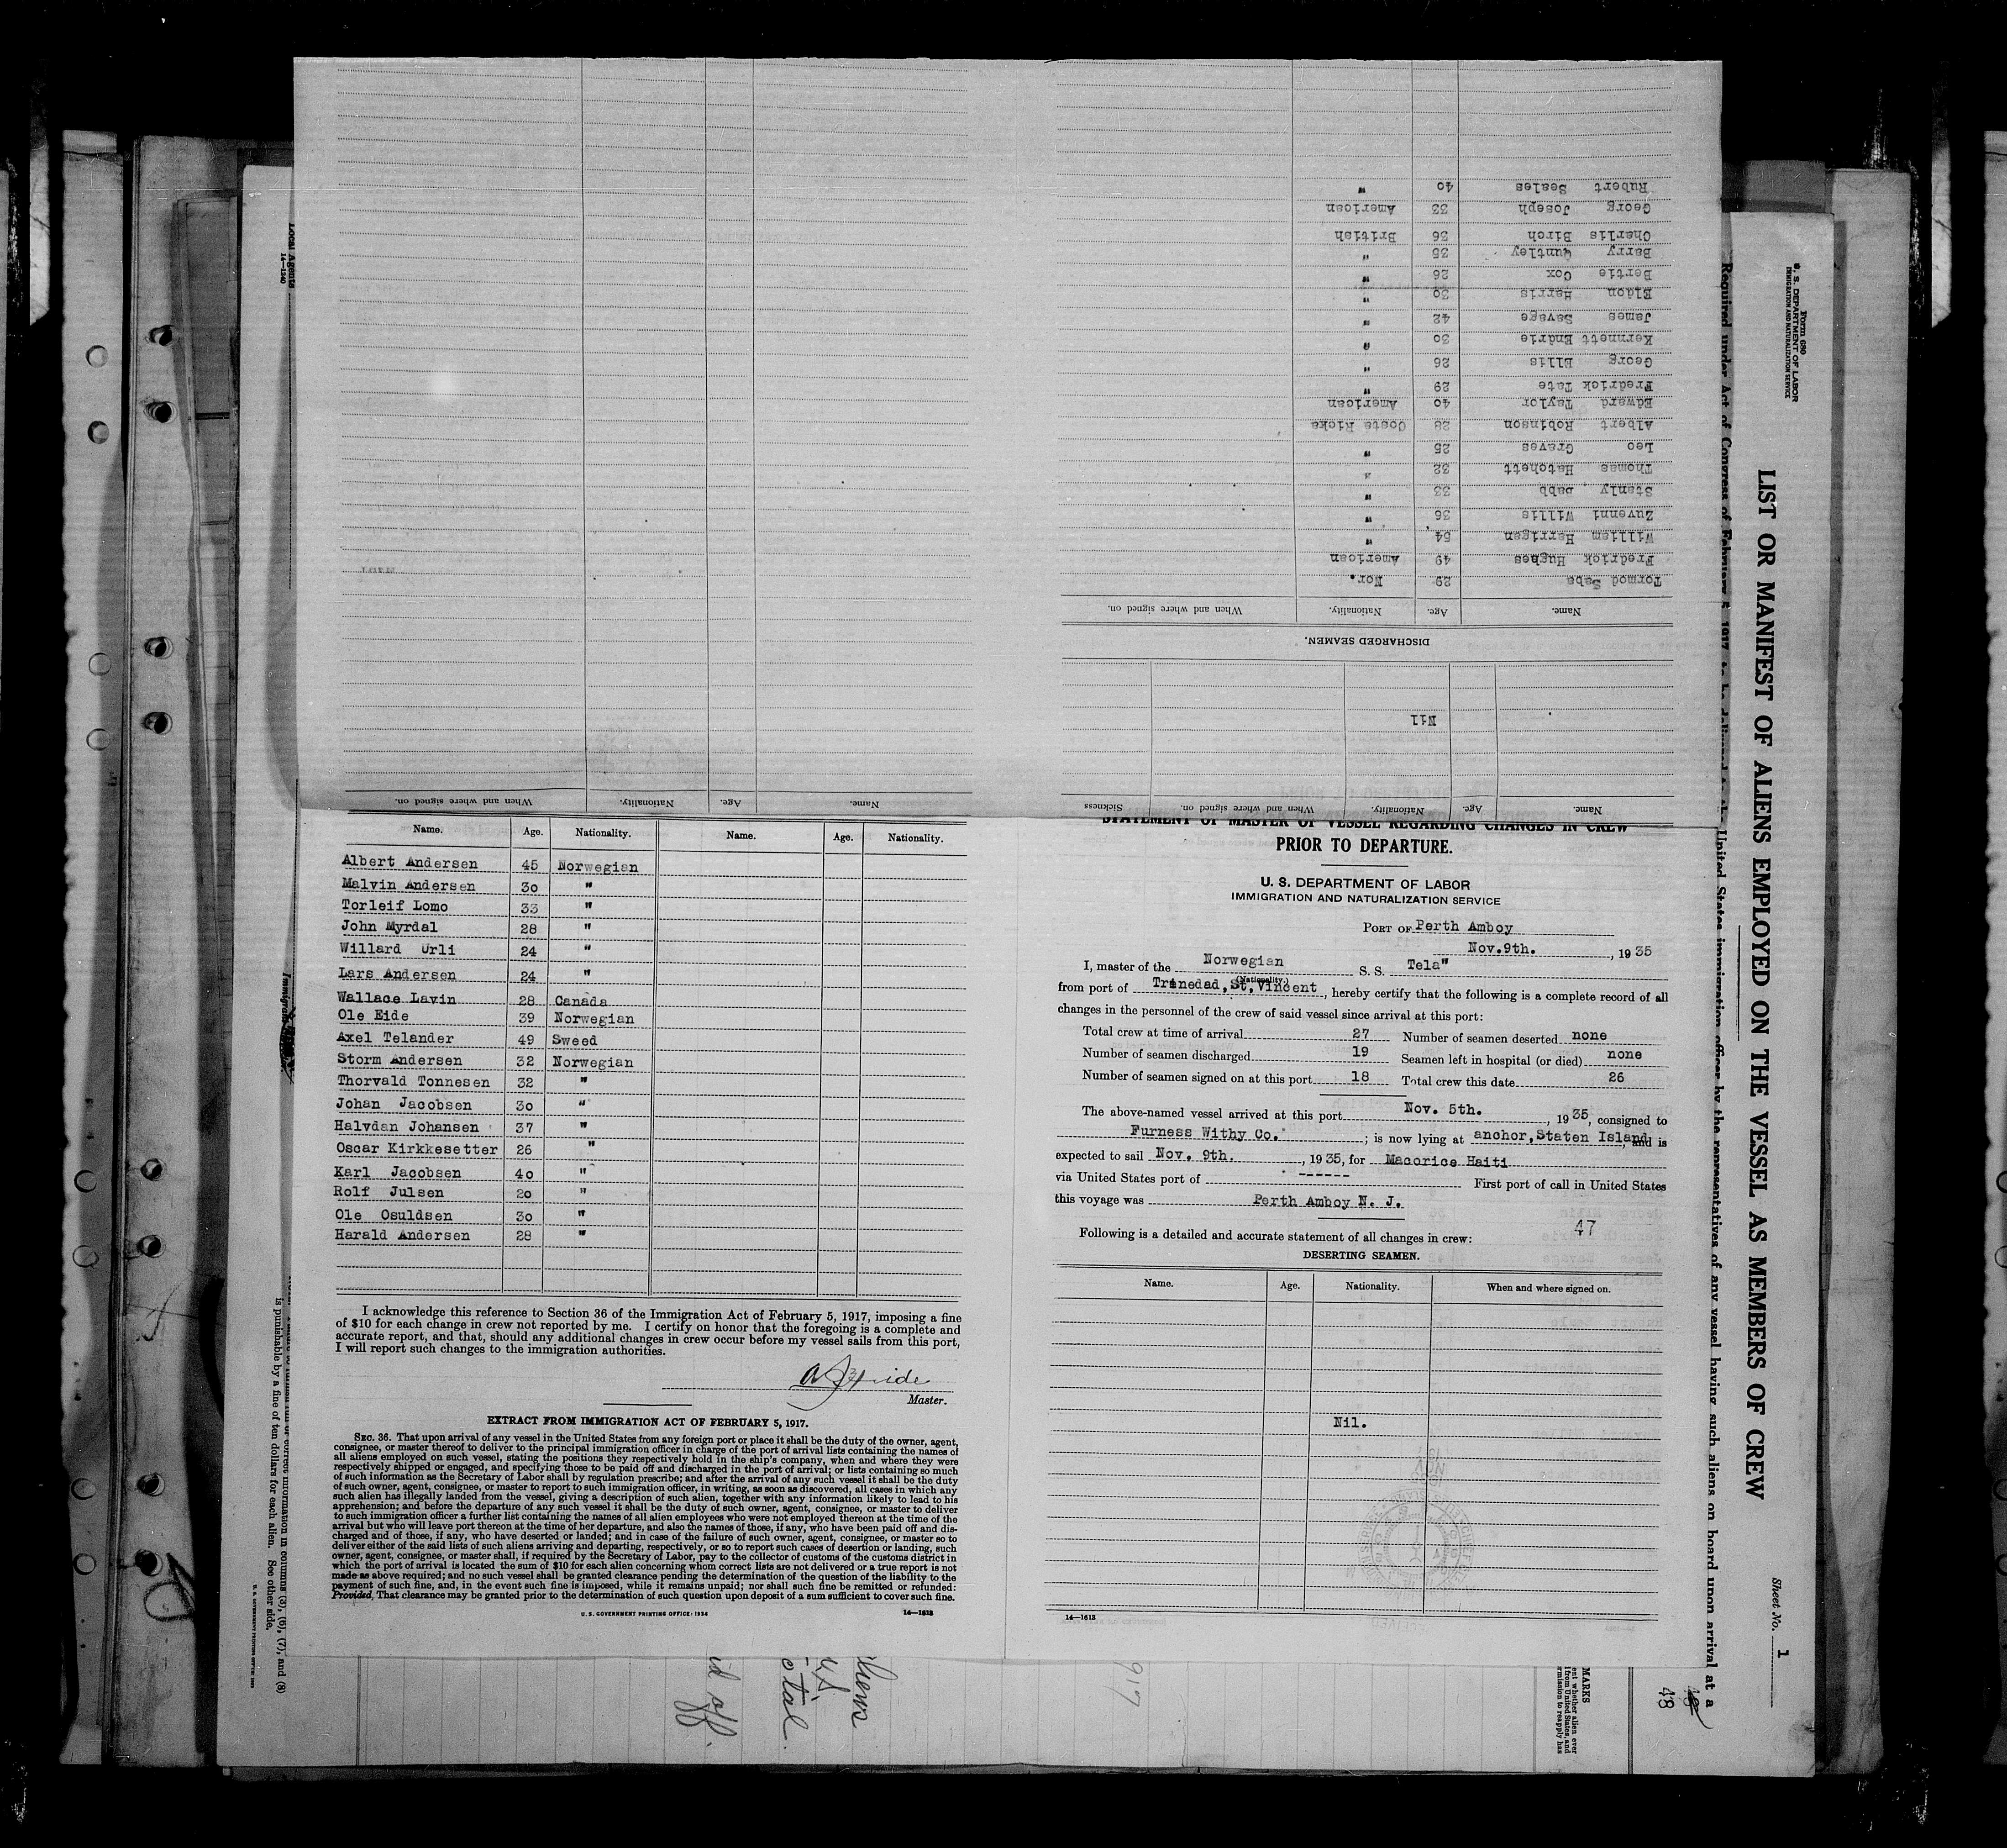 Name. Age. Nationality. Name. Age. Nationality.
Albert Andersen 45 Norwegian
Malvin Andersen 30 "
Torleif Lomo 33 "
John Myrdal 28 "
Willard Urli 24 "
Lars Andersen 24 "
Wallace Lavin 28 Canada
Ole Eide 39 Norwegian
Axel Telander 49 Sweed
Storm Andersen 32 Norwegian
Thorvald Tonnesen 32 "
Johan Jacobsen 30 "
Halvdan Johansen 37 "
Oscar Kirkkesetter 26 "
Karl Jacobsen 40 "
Rolf Julsen 20 "
Ole Osuldsen 30 "
Harald Andersen 28 "
I acknowledge this reference to Section 36 of the Immigration Act of February 5, 1917, imposing a fine
of $10 for each change in crew not reported by me. I certify on honor that the foregoing is a complete and
accurate report, and that, should any additional changes in crew occur before my vessel sails from this port,
I will report such changes to the immigration authorities.
Master.
EXTRACT FROM IMMIGRATION ACT OF FEBRUARY 5, 1917.
SEC. 36. That upon arrival of any vessel in the United States from any foreign port or place it shall be the duty of the owner, agent,
consignee, or master thereof to deliver to the principal immigration officer in charge of the port of arrival lists containing the names of
all aliens employed on such vessel, stating the positions they respectively hold in the ship's company, when and where they were
respectively shipped or engaged, and specifying those to be paid off and discharged in the port of arrival; or lists containing so much
of such information as the Secretary of Labor shall by regulation prescribe; and after the arrival of any such vessel it shall be the duty
of such owner, agent, consignee, or master to report to such immigration officer, in writing, as soon as discovered, all cases in which any
such alien has illegally landed from the vessel, giving a description of such alien, together with any information likely to lead to his
apprehension; and before the departure of any such vessel it shall be the duty of such owner, agent, consignee, or master to deliver
to such immigration officer a further list containing the names of all alien employees who were not employed thereon at the time of the
arrival but who will leave port thereon at the time of her departure, and also the names of those, if any, who have been paid off and dis-
charged and of those, if any, who have deserted or landed; and in case of the failure of such owner, agent, consignee, or master so to
deliver either of the said lists of such aliens arriving and departing, respectively, or so to report such cases of desertion or landing, such
owner, agent, consignee, or master shall, if required by the Secretary of Labor, pay to the collector of customs of the customs district in
which the port of arrival is located the sum of $10 for each alien concerning whom correct lists are not delivered or a true report is not
made as above required; and no such vessel shall be granted clearance pending the determination of the question of the liability to the
payment of such fine, and, in the event such fine is imposed, while it remains unpaid; nor shall such fine be remitted or refunded:
Provided, That clearance may be granted prior to the determination of such question upon deposit of a sum sufficient to cover such fine.
U. S. GOVERNMENT PRINTING OFFICE: 1934 14—1613
STATEMENT OF MASTER OF VESSEL REGARDING CHANGES IN CREW
PRIOR TO DEPARTURE.
U. S. DEPARTMENT OF LABOR
IMMIGRATION AND NATURALIZATION SERVICE
PORT OF Perth Amboy
Nov.9th. , 19 35
I, master of the Norwegian S. S. Tela"
(Nationality)
from port of Trinedad,St,Vincent , hereby certify that the following is a complete record of all
changes in the personnel of the crew of said vessel since arrival at this port:
Total crew at time of arrival 27 Number of seamen deserted none
Number of seamen discharged 19 Seamen left in hospital (or died) none
Number of seamen signed on at this port 18 Total crew this date 26
The above-named vessel arrived at this port Nov. 5th. , 19 35, consigned to
Furness Withy Co. ; is now lying at anchor,Staten Island, and is
expected to sail Nov. 9th. , 19 35, for Macorice Haiti
via United States port of ------ First port of call in United States
this voyage was Perth Amboy N. J.
47
Following is a detailed and accurate statement of all changes in crew:
DESERTING SEAMEN.
Name. Age. Nationality. When and where signed on.
Nil.
14—1613
Name. Age. Nationality. When and where signed on. Sickness
Nil
DISCHARGED SEAMEN.
Name. Age. Nationality. When and where signed on.
Tormod Sabs 29 Nor.
Fredrick Hughes 49 American
William Harrigan 54 "
Zuvenni Willis 36 "
Stanly Babb 33 "
Thomas Hatchett 32 "
Leo Graves 25 "
Albert Robinson 28 Costa Ricka
Edward Taylor 40 American
Fredrick Tate 29 "
Georg Ellis 26 "
Kernnett Endrie 30 "
James Savage 42 "
Eldon Harris 30 "
Bertie Cox 26 "
Barry Quntley 35 "
Charlis Birch 36 British
Georg Joseph 33 American
Rubert Seales 40 "
Name. Age. Nationality. When and where signed on.
Form 680
U. S. DEPARTMENT OF LABOR
IMMIGRATION AND NATURALIZATION SERVICE
LIST OR MANIFEST OF ALIENS EMPLOYED ON THE VESSEL AS MEMBERS OF CREW
Sheet No. 1
Required under Act of Congress of February 5, 1917, to be delivered to the United States immigration officer by the representatives of any vessel having such aliens on board upon arrival at a
48
MARKS
Local Agents
14—1240
is punishable by a fine of ten dollars for each alien. See other side.
in columns (5), (6), (7), and (8)